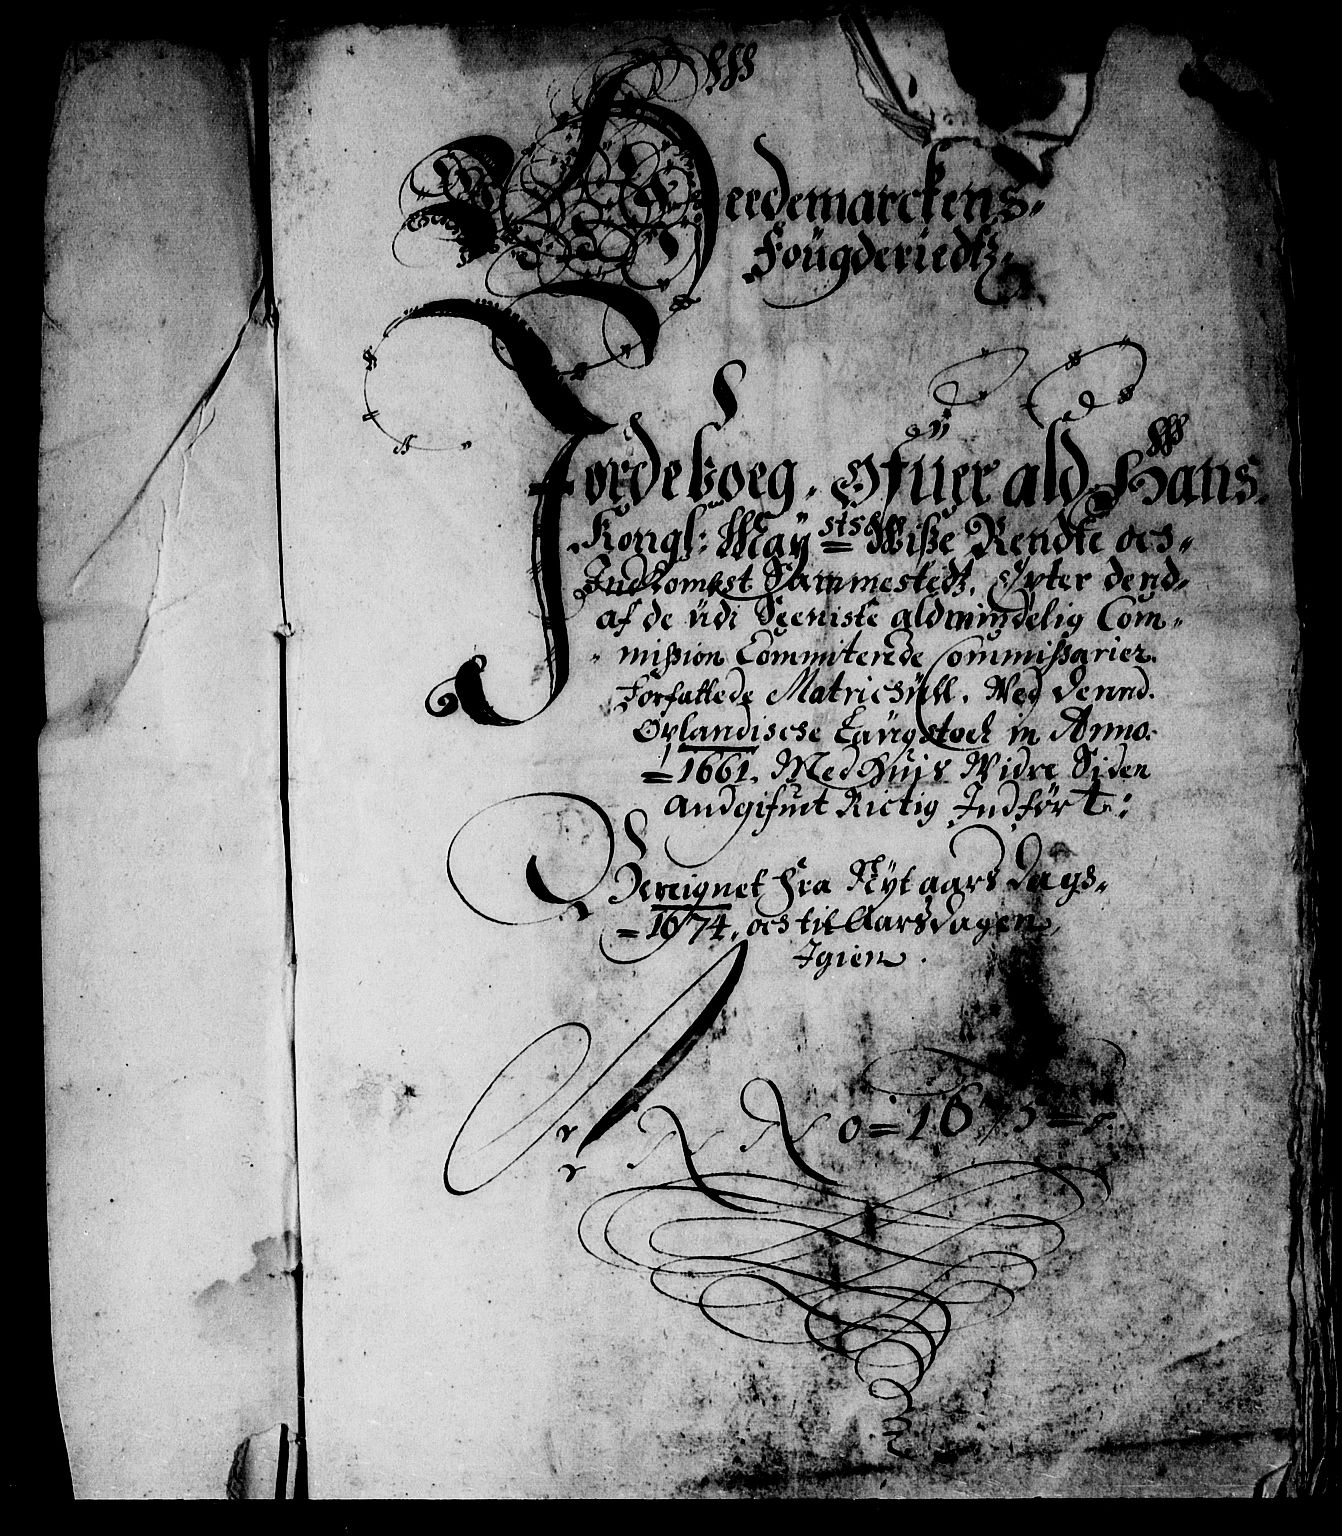 Heedemarckens
Fougderiedtz
Jordeboeg, Øfuer ald Hans
Kongl: May=sts Wiße Rendte och
Indkombst Sammestedtz, efter dend
af de udi Seeniste aldmindelig Com-
mißion Committerede Commißarier
Forfattede Matricsull, Wed Dennd
Oplandische Laugstoel in Anno
=1661. Med Huis Widre Siden
Andgifuit Rictig Indført:
Bereignet fra Nyt aars Dags
=1674, och til Aarsdagen
Igien.
ANNo=1675=